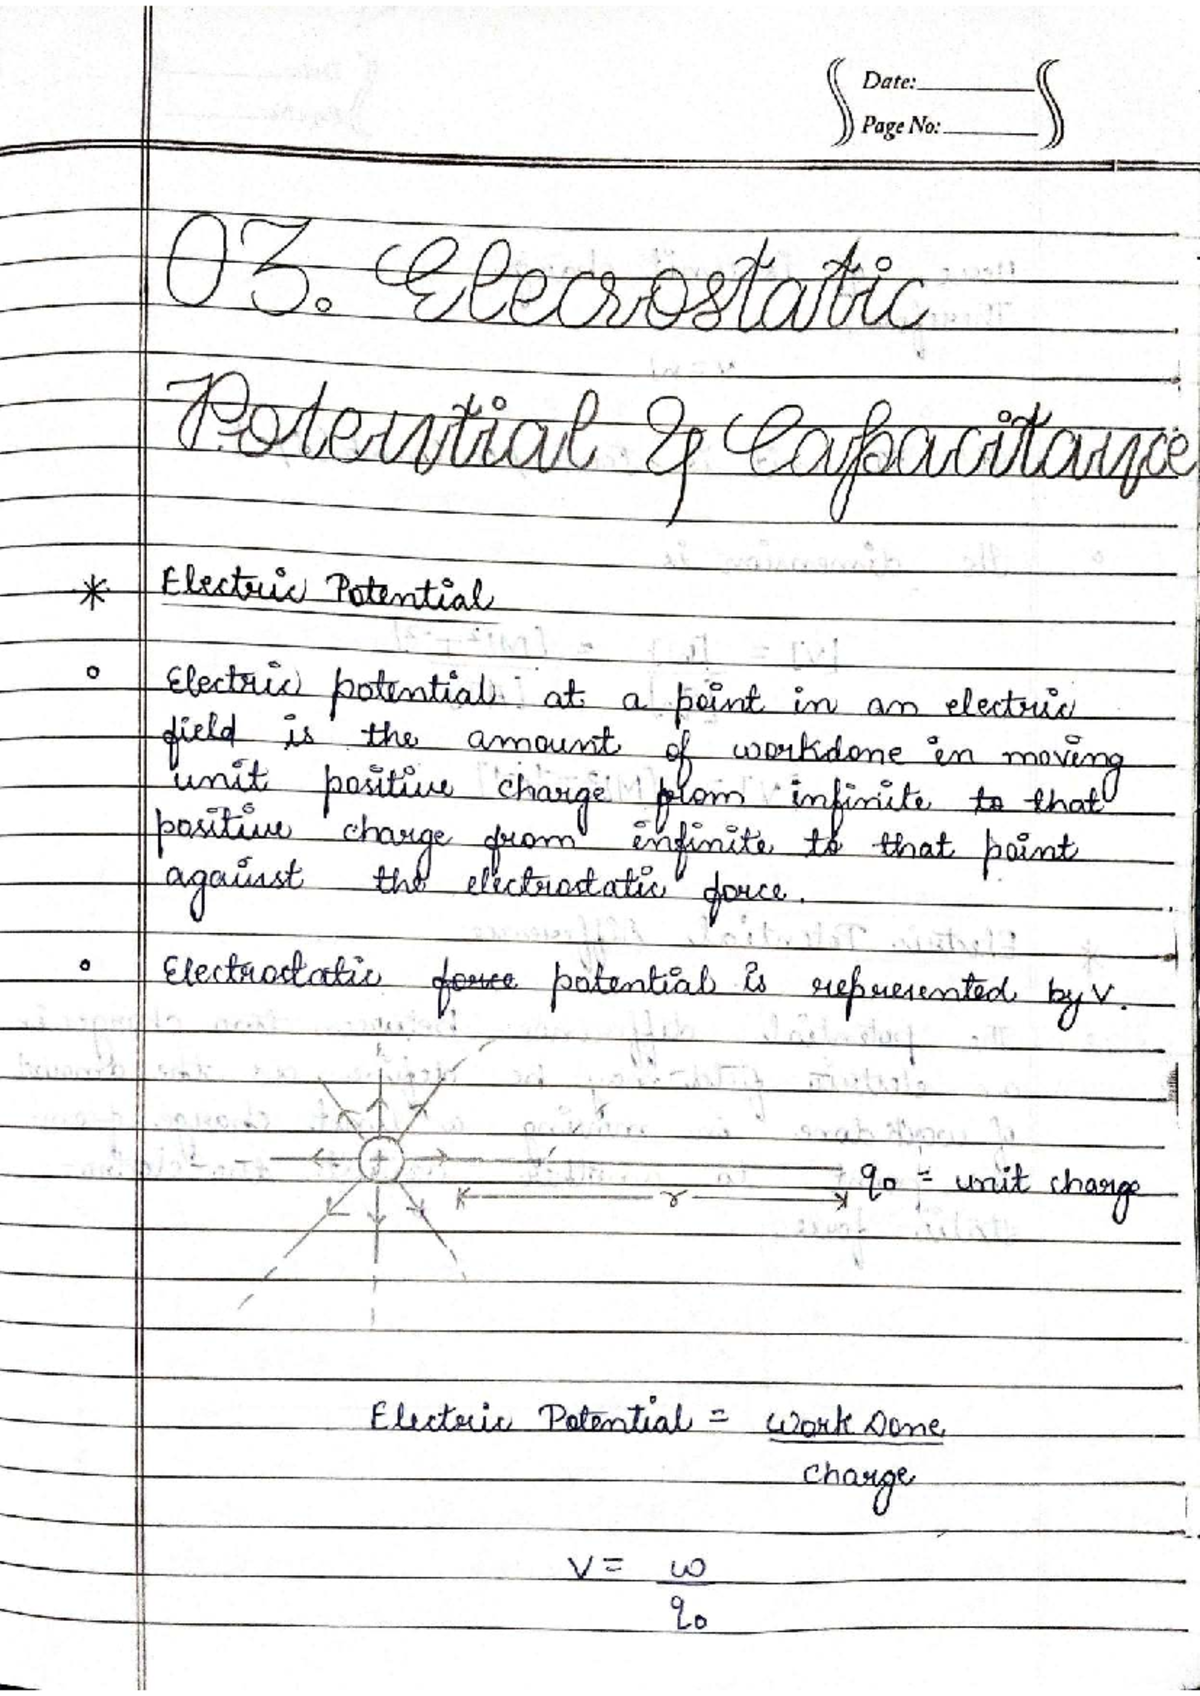 Date:
Page No:
03. Elecrostatic
Potential & Capacitance
* Electric Potential
Electric potential at a point in an electric
field is the amount of workdone in moving
unit positive charge from infinite to that
positive charge from infinite to that point
against the electrostatic force.
Electrostatic force potential is represented by V.
+
r
q₀ = unit charge
Electric Potential = Work Done
charge
V = w
q₀